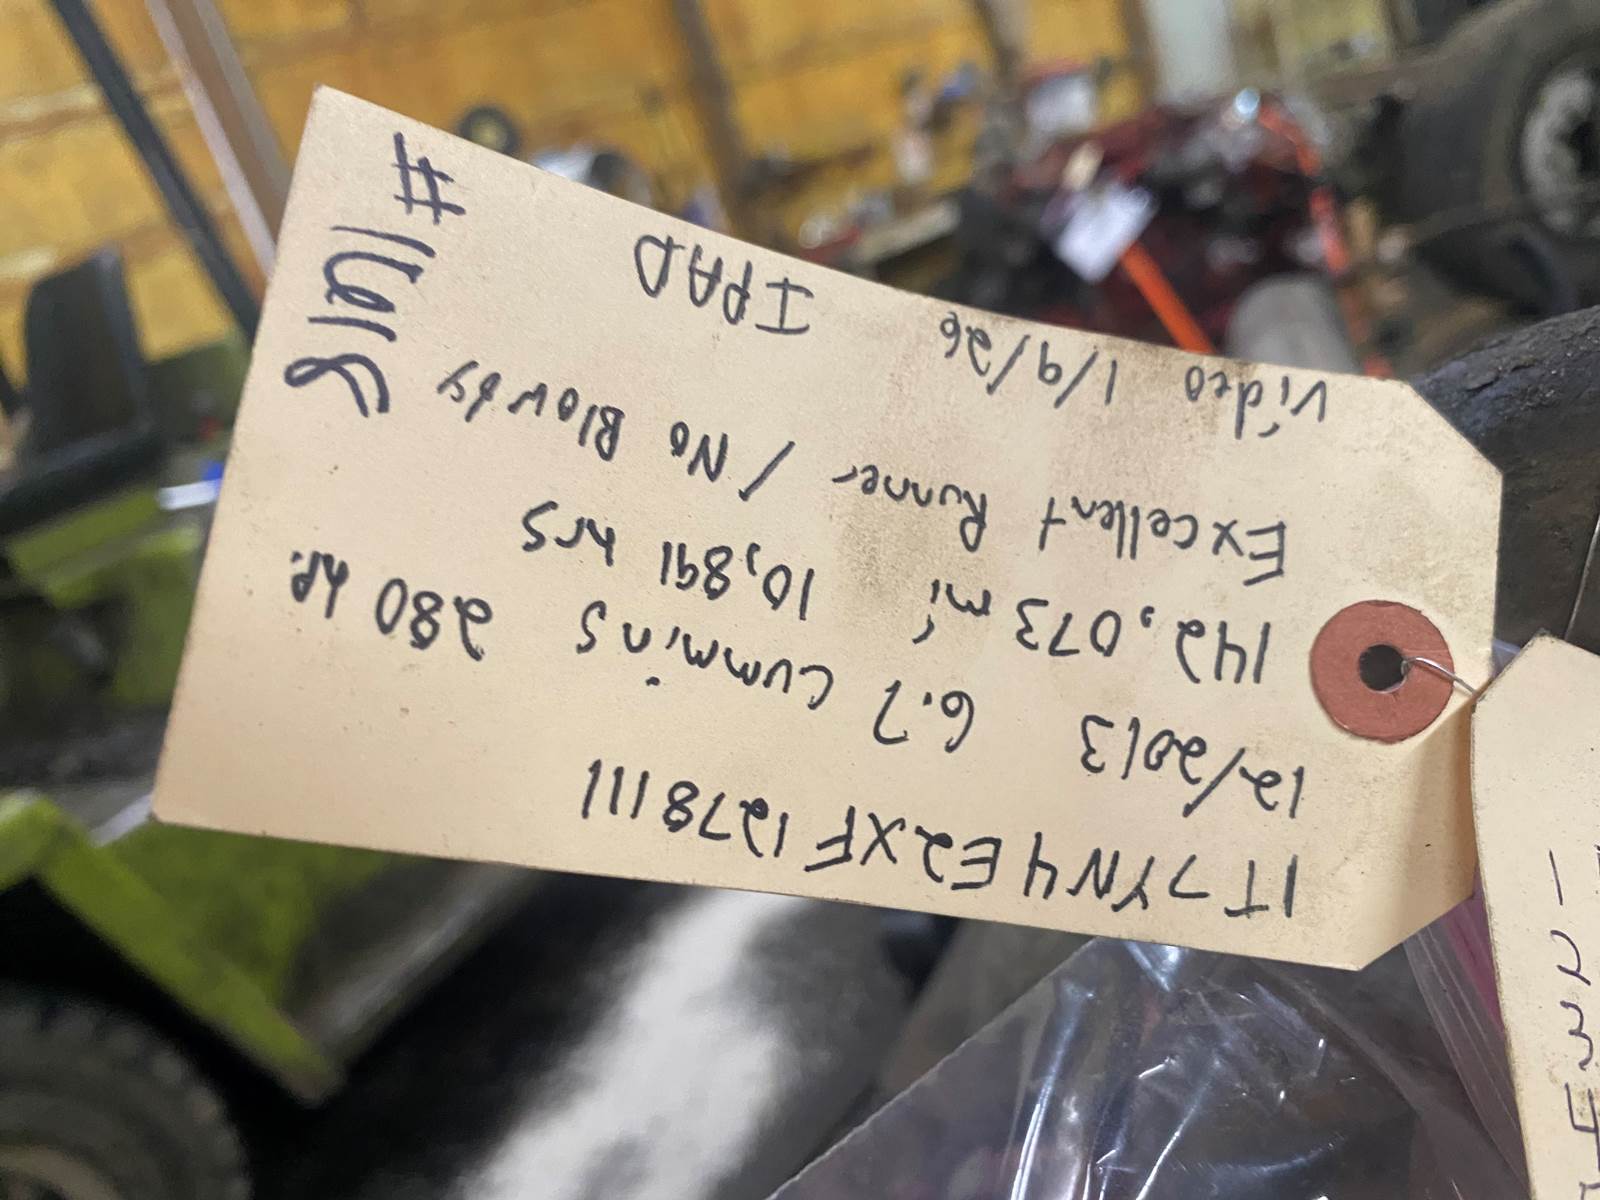 1T7YN4E2XF1278111
12/2013 6.7 Cummins 280 hp.
142,073 mi 10,891 hrs
Excellent Runner / No Blowby
Video 1/9/26 IPAD
#1618